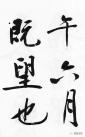 午六月
既望也